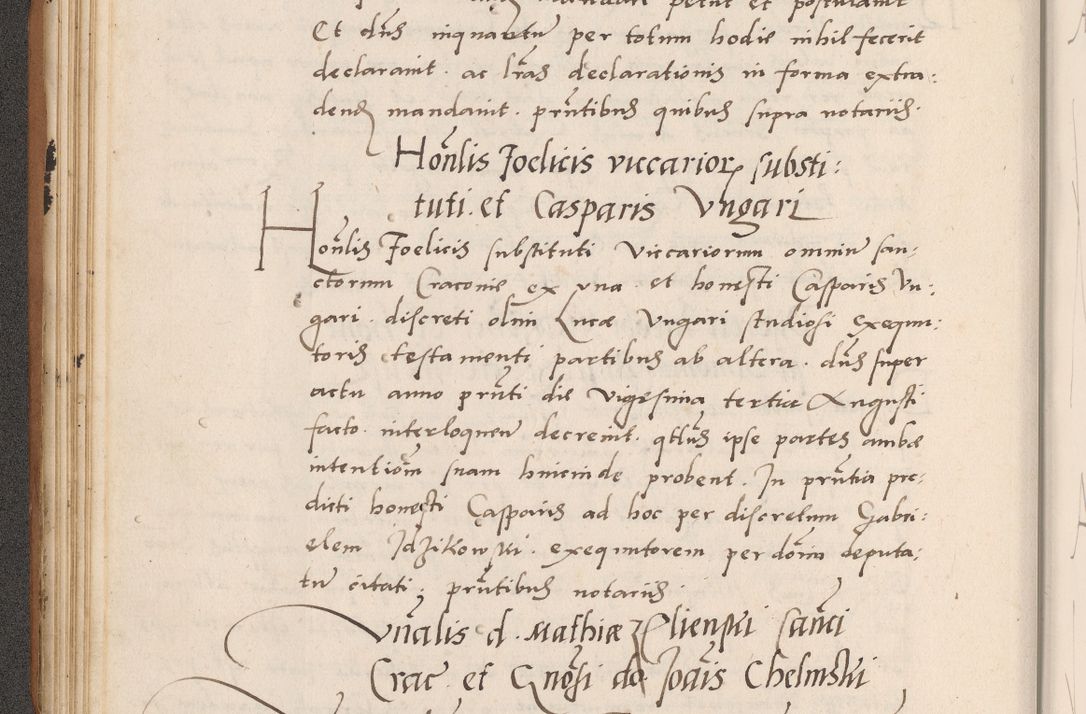 mandari petit et postulavit
Et dn̄s inquantu per totum hodie nihil fecerit
declaravit . ac l̄ras declarationis in forma extra:
dend mandavit . prn̄tibus quibus supra notariis.
Hon̄lis Foelicis viccarior substi:
tuti . et Casparis Vngari
Hon̄lis Foelicis substituti Viccariorum omniu san:
ctorum Cracovie ex vna . et honesti Casparis Vn:
gari . discreti olim Lucæ Vngari studiosi exequu:
toris testamenti partibus ab altera . dn̄s super
actu anno prn̄ti die vigesima tertia Augusti
facto . interloquen decrevit . qtn̄us ipse partes ambæ
intention̄ suam hincinde probent . In prn̄tia pre:
dicti honesti Casparis ad hoc per discretum Gabri:
elem Idzikowski . exequutorem per dom̄ deputa:
tu citati ; prn̄tibus notariis
Vn̄alis d . Mathiæ Zlienski san̄ci
Crac . et Gn̄osi do Joan̄is Chelmski